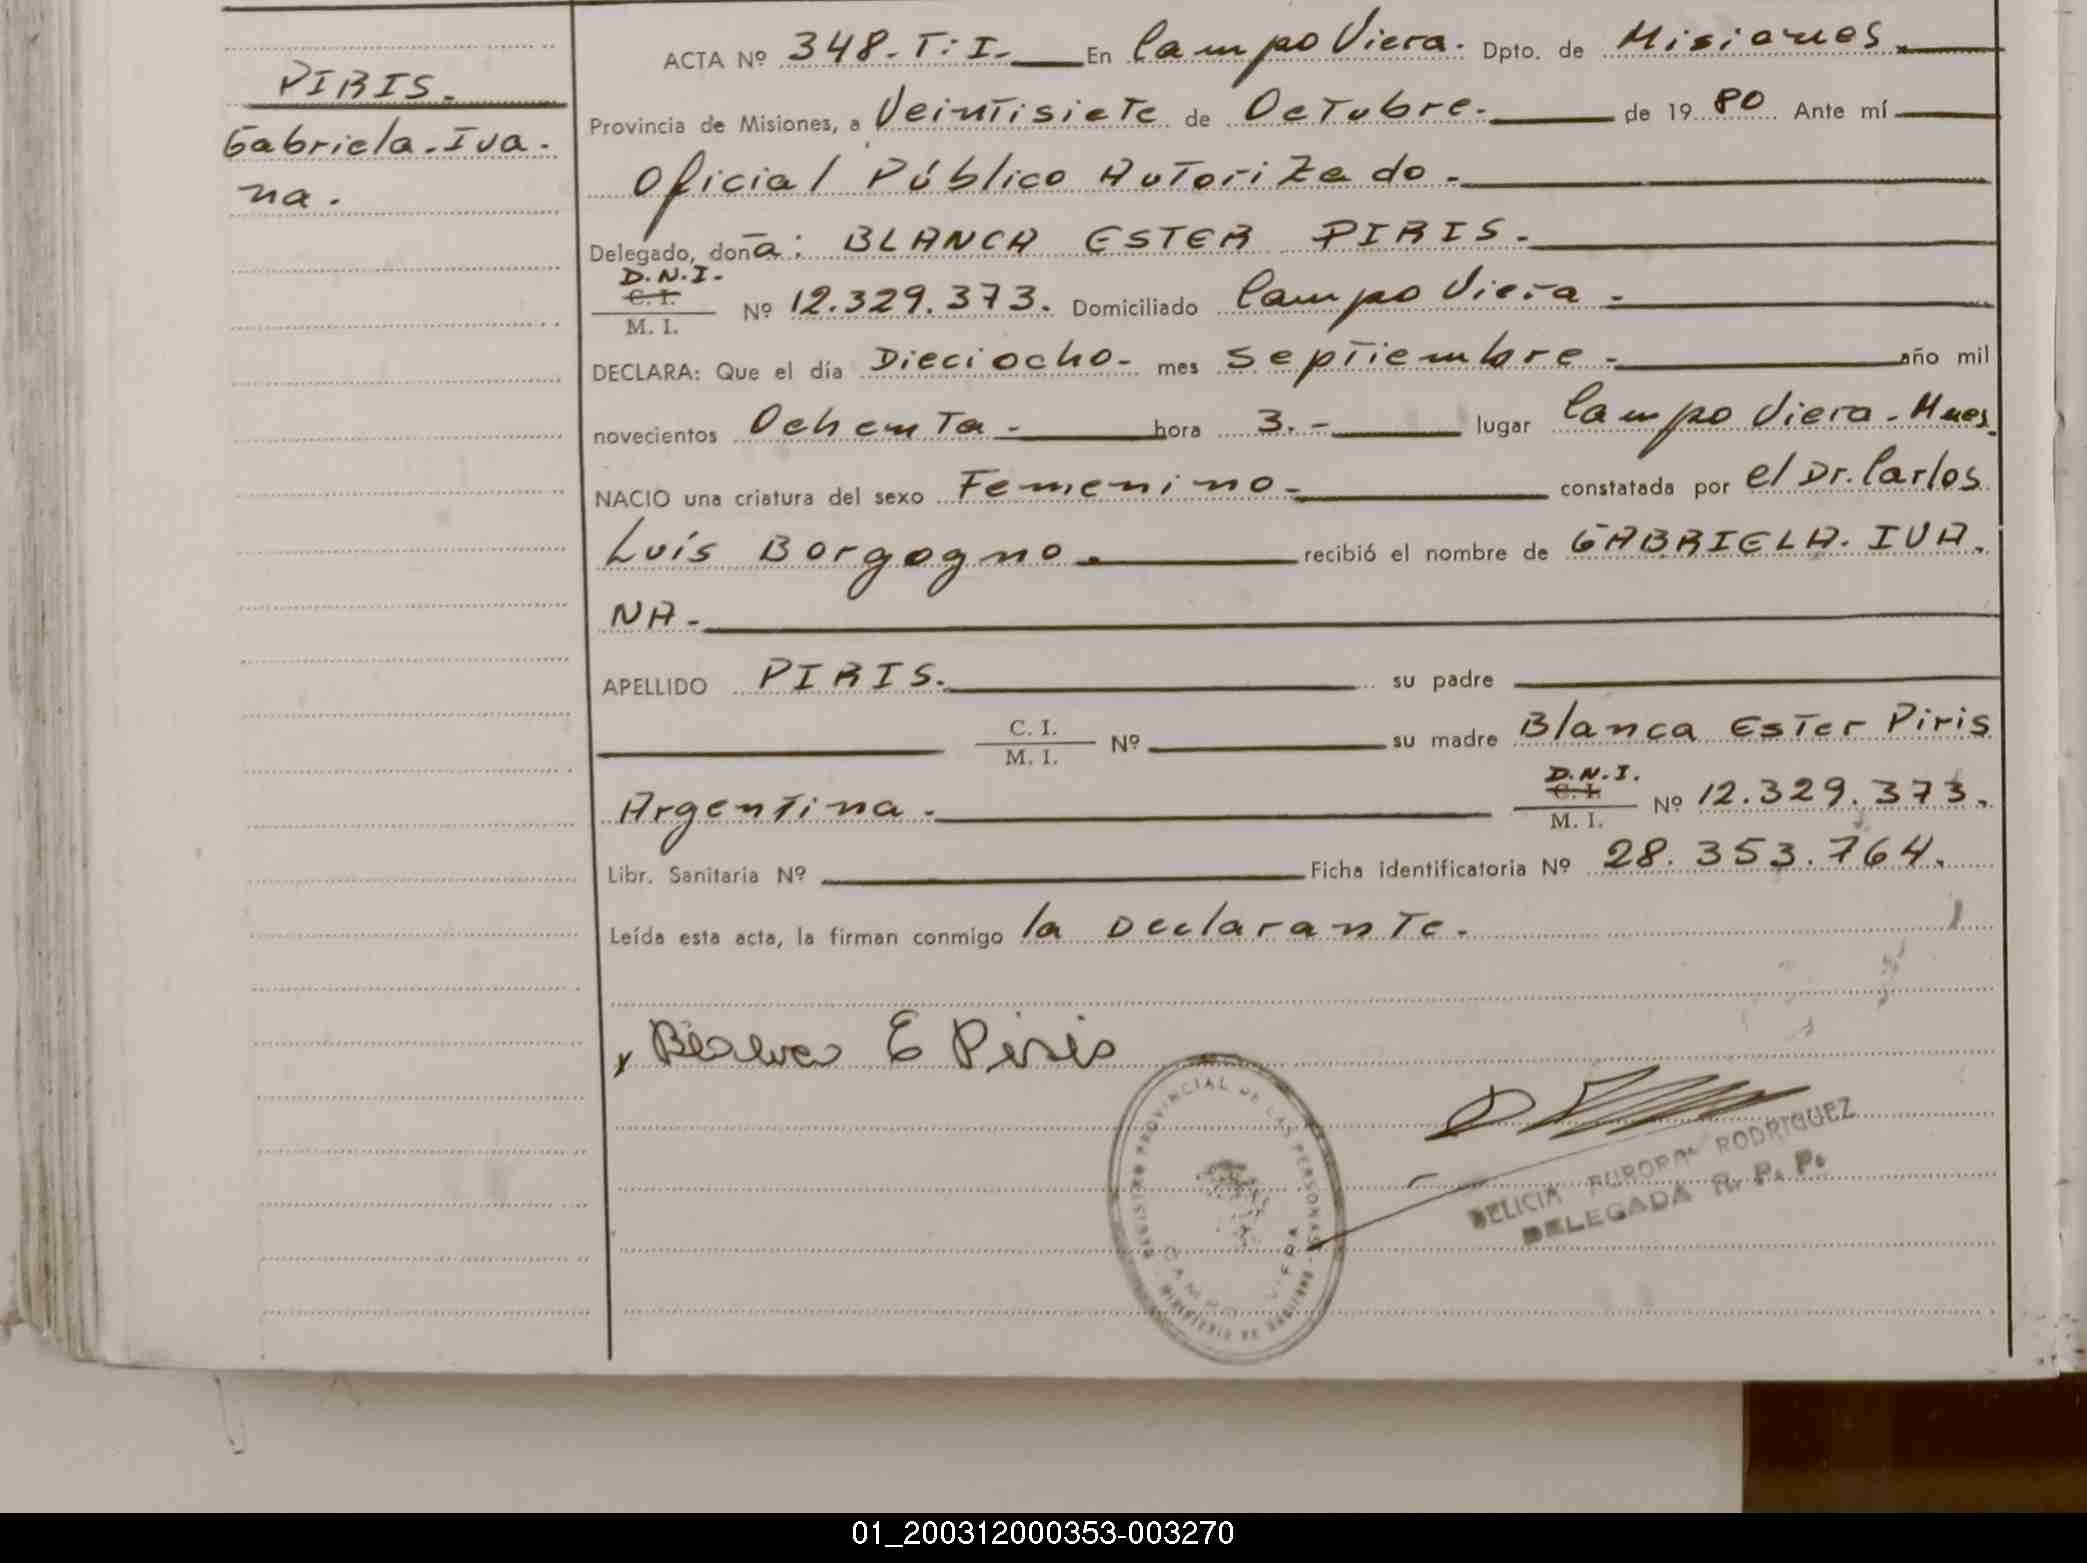 PIRIS.
Gabriela. Iva.
na.
ACTA Nº 348. T: I. En Campo Viera. Dpto. de Misiones.
Provincia de Misiones, a Veintisiete de Octubre. de 19 80 Ante mí
Oficial Público Autorizado.
Delegado, doña: BLANCA ESTER PIRIS.
D.N.I.
C. I.
M. I.
Nº 12.329.373. Domiciliado Campo Viera
DECLARA: Que el día Dieciocho- mes Septiembre. año mil
novecientos Ochenta - hora 3. - lugar Campo Viera - Mnes.
NACIO una criatura del sexo Femenino- constatada por el Dr. Carlos
Luís Borgogno. recibió el nombre de GABRIELA. IVA.
NA.
APELLIDO PIRIS. su padre
C. I.
M. I.
Nº su madre Blanca Ester Piris
D.N.I.
Argentina. C. I.
M. I.
Nº 12.329.373.
Libr. Sanitaria Nº Ficha identificatoria Nº 28.353.764.
Leída esta acta, la firman conmigo la Declarante.
E Piris
REGISTRO PROVINCIAL DE LAS PERSONAS
CAMPO VIERA
DELICIA AURORA RODRIGUEZ
DELEGADA R. P. P.
01_200312000353-003270